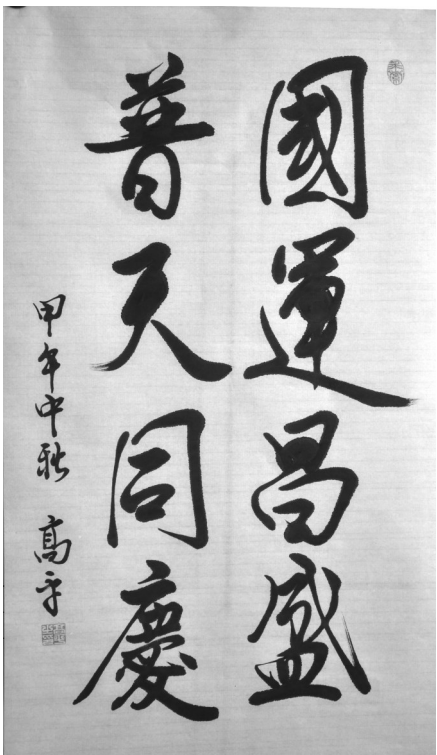 國運昌盛
普天同慶
甲午中秋 高平